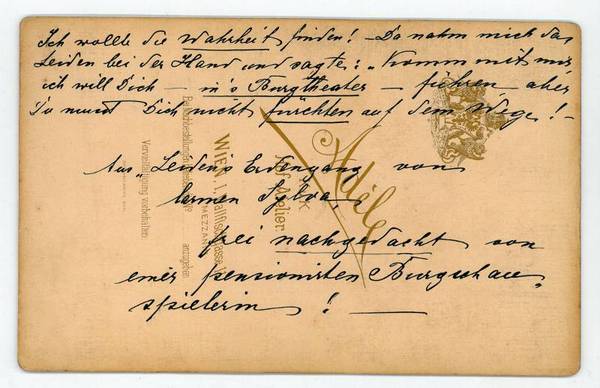 Ich wollte die Wahrheit finden! – Da nahm mich das
Leiden bei der Hand und sagte: „Komm mit mir
ich will Dich – in's Burgtheater – führen – aber
Du musst Dich nicht fürchten auf dem Wege! –
Aus „Leidens Erdengang von
Carmen Sylva,
frei nachgedacht von
einer pensionirten Burgschau-
spielerin! —
Adèle
k.k. Hof-Atelier
WIEN, I. Wallfischgasse
MEZZANIN
Vervielfältigung vorbehalten